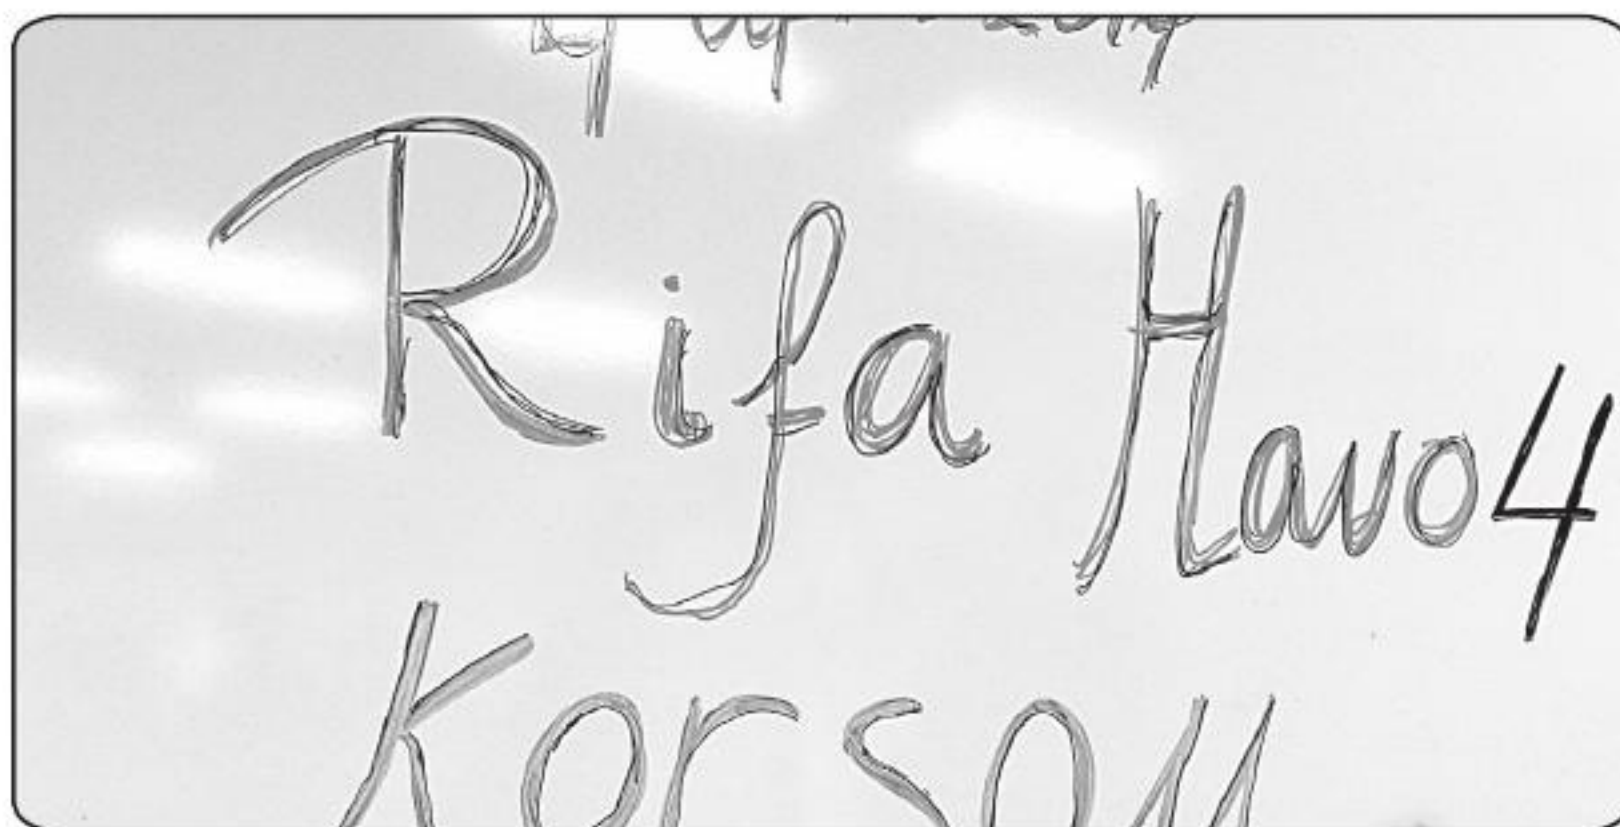 Rifa Havo 4
Korsou